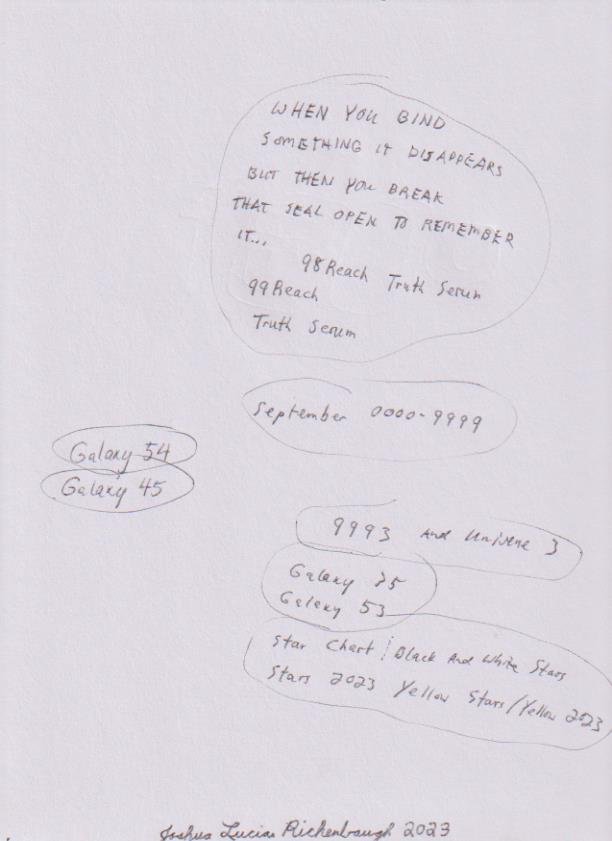 WHEN YOU BIND
SOMETHING IT DISAPPEARS
BUT THEN YOU BREAK
THAT SEAL OPEN TO REMEMBER
IT...
98 Reach Truth Serum
99 Reach
Truth Serum
September 0000-9999
Galaxy 54
Galaxy 45
9993 And Universe 3
Galaxy 35
Galaxy 53
Star Chart Black And White Stars
Stars 2023 Yellow Stars/Yellow 2023
Joshua Lucias Richenbaugh 2023